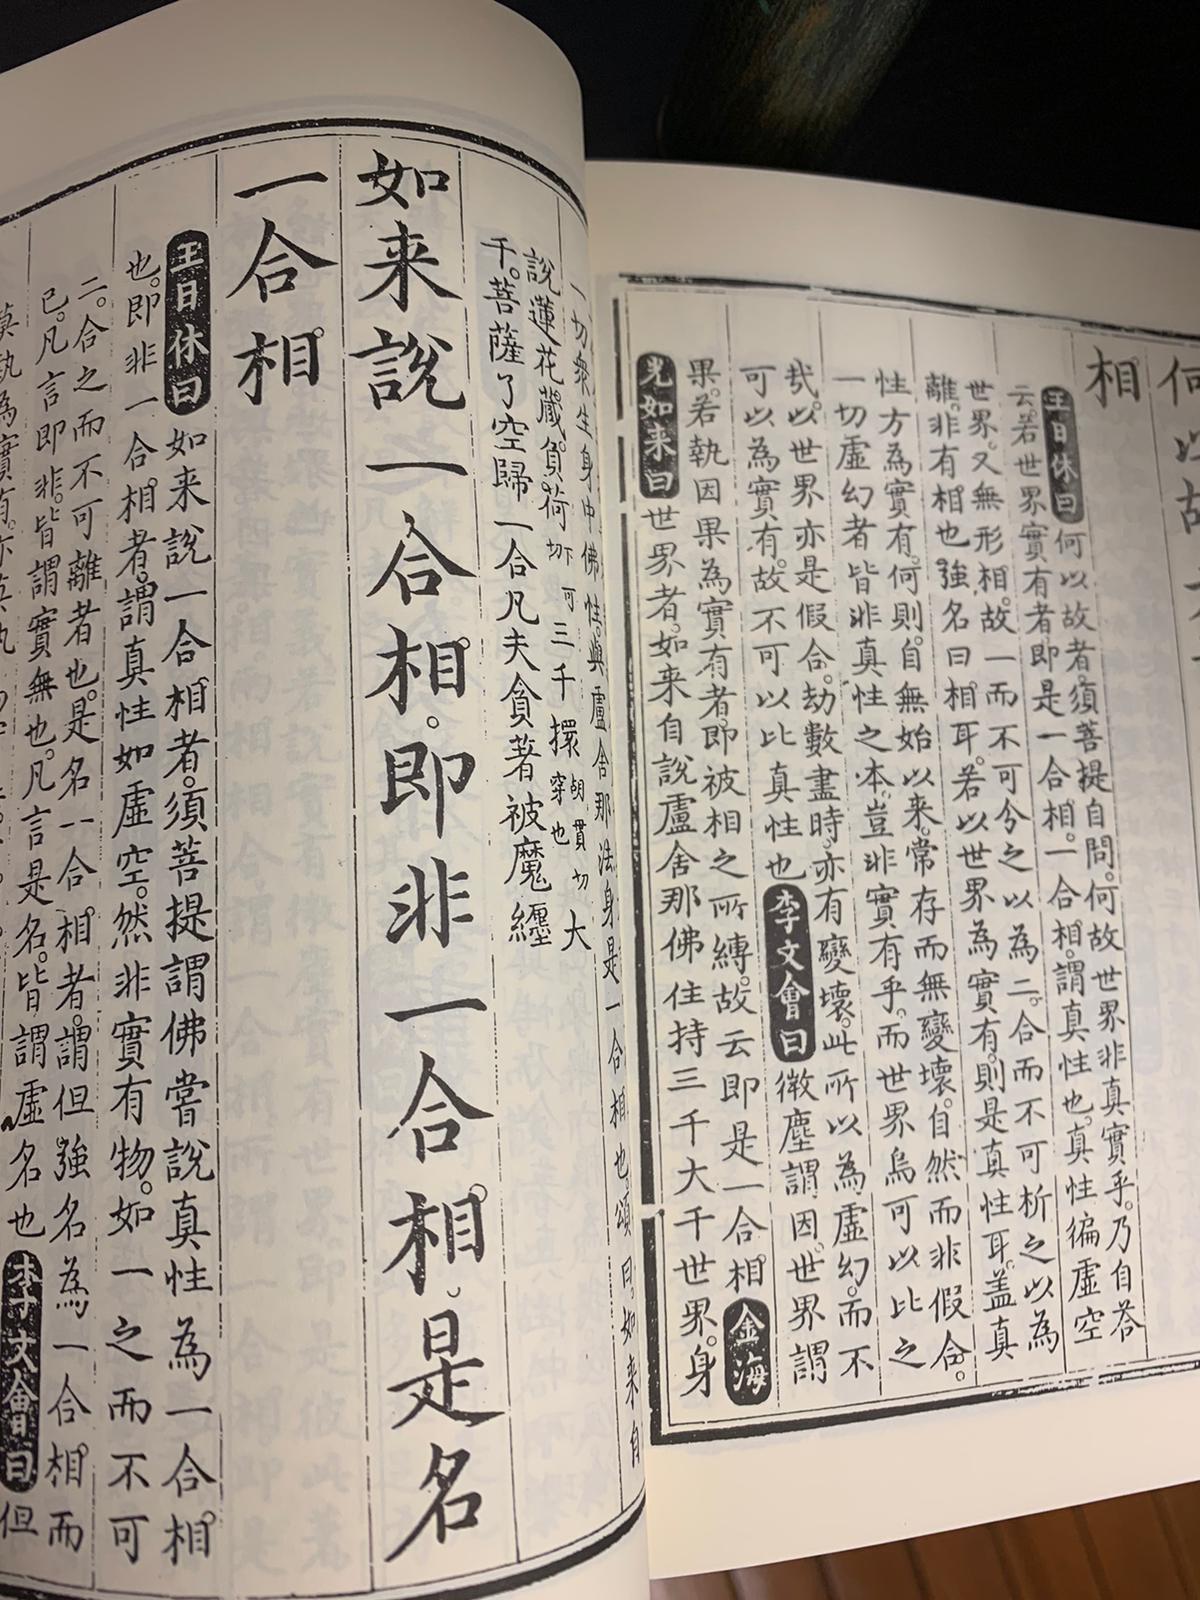 何以故
相
王日休曰何以故者。須菩提自問。何故世界非真實乎。乃自荅
云。若世界實有者即是一合相。一合相。謂真性也。真性徧虛空
世界。又無形相。故一而不可分之以為二。合而不可析之以為
離。非有相也強名曰相耳。若以世界為實有。則是真性耳。蓋真
性方為實有。何則。自無始以来。常存而無變壞。自然而非假合。
一切虛幻者皆非真性之本。豈非實有乎。而世界烏可以比之
哉。以世界亦是假合。劫數盡時。亦有變壞。此所以為虛幻。而不
可以為實有。故不可以比真性也李文會曰微塵謂因。世界謂
果。若執因果為實有者。即被相之所縛。故云即是一合相金海
光如来曰世界者。如来自說盧舍那佛住持三千大千世界。身
一切衆生身中佛性。與盧舍那法身是一合相也。頌曰。如来自
說蓮花藏。負荷下可切三千擐胡貫切穿也大
千。菩薩了空歸一合凡夫貪著被魔纏
如来說一合相。即非一合相。是名
一合相
王日休曰如来說一合相者。須菩提謂佛嘗說真性為一合相
也。即非一合相者。謂真性如虛空。然非實有物。如一之而不可
二。合之而不可離者也。是名一合相者。謂但強名為一合相而
已。凡言即非。皆謂實無也。凡言是名。皆謂虛名也李文會曰但
莫執為實有。亦莫執